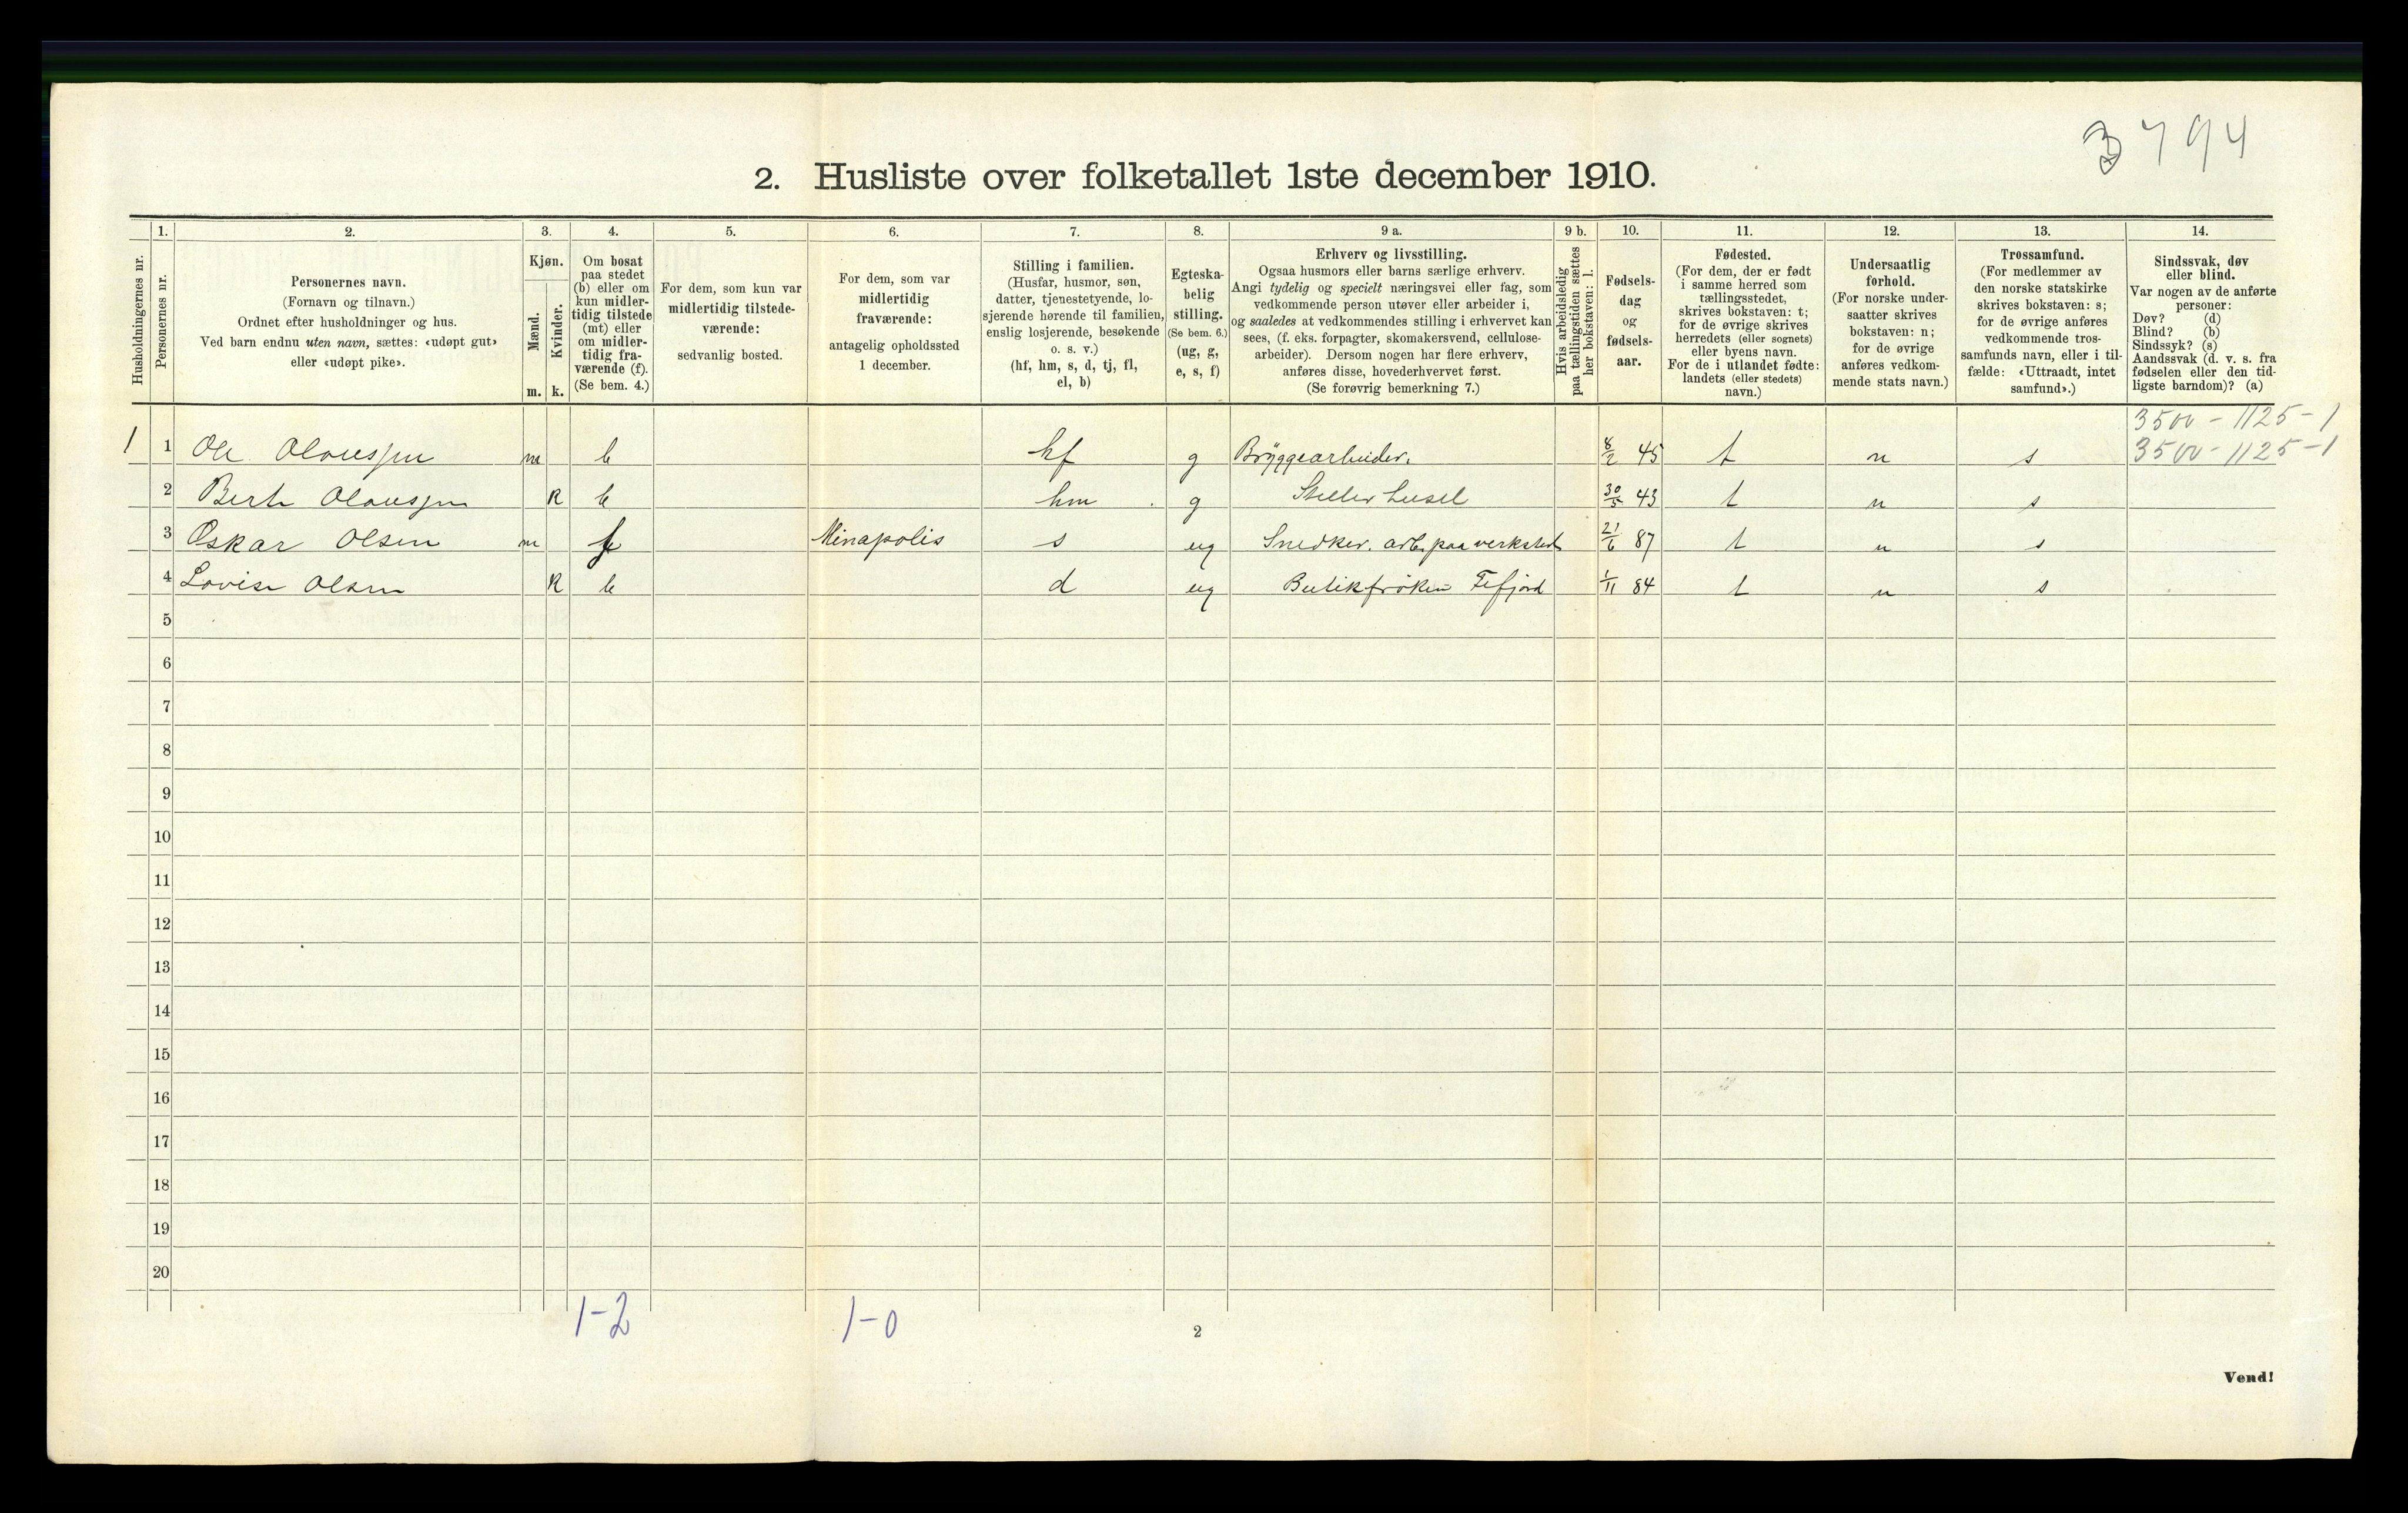 3794
2. Husliste over folketallet 1ste december 1910.
1. 2. 3. 4. 5. 6. 7. 8. 9 a. 9 b. 10. 11. 12. 13. 14.
Husholdningernes nr.
Personernes nr.
Personernes navn.
(Fornavn og tilnavn.)
Ordnet efter husholdninger og hus.
Ved barn endnu uten navn, sættes: «udøpt gut»
eller «udøpt pike».
Kjøn.
Mænd.
Kvinder.
m. k.
Om bosat
paa stedet
(b) eller om
kun midler-
tidig tilstede
(mt) eller
om midler-
tidig fra-
værende (f).
(Se bem. 4.)
For dem, som kun var
midlertidig tilstede-
værende:
sedvanlig bosted.
For dem, som var
midlertidig
fraværende:
antagelig opholdssted
1 december.
Stilling i familien.
(Husfar, husmor, søn,
datter, tjenestetyende, lo-
sjerende hørende til familien,
enslig losjerende, besøkende
o. s. v.)
(hf, hm, s, d, tj, fl,
el, b)
Egteska-
belig
stilling.
(Se bem. 6.)
(ug, g,
e, s, f)
Erhverv og livsstilling.
Ogsaa husmors eller barns særlige erhverv.
Angi tydelig og specielt næringsvei eller fag, som
vedkommende person utøver eller arbeider i,
og saaledes at vedkommendes stilling i erhvervet kan
sees, (f. eks. forpagter, skomakersvend, cellulose-
arbeider). Dersom nogen har flere erhverv,
anføres disse, hovederhvervet først.
(Se forøvrig bemerkning 7.)
Hvis arbeidsledig
paa tællingstiden sættes
her bokstaven: l.
Fødsels-
dag
og
fødsels-
aar.
Fødested.
(For dem, der er født
i samme herred som
tællingsstedet,
skrives bokstaven: t;
for de øvrige skrives
herredets (eller sognets)
eller byens navn.
For de i utlandet fødte:
landets (eller stedets)
navn.)
Undersaatlig
forhold.
(For norske under-
saatter skrives
bokstaven: n;
for de øvrige
anføres vedkom-
mende stats navn.)
Trossamfund.
(For medlemmer av
den norske statskirke
skrives bokstaven: s;
for de øvrige anføres
vedkommende tros-
samfunds navn, eller i til-
fælde: «Uttraadt, intet
samfund».)
Sindssvak, døv
eller blind.
Var nogen av de anførte
personer:
Døv? (d)
Blind? (b)
Sindssyk? (s)
Aandssvak (d. v. s. fra
fødselen eller den tid-
ligste barndom)? (a)
3500 - 1125 - 1
1 1 Ole Olaussen m b hf g Bryggearbeider. 8/2 45 t n s 3500 - 1125 - 1
2 Berte Olaussen k b hm g Steller huset 30/5 43 t n s
3 Oskar Olsen m f Minapolis s ug Snedker. arb. paa verksted 21/6 87 t n s
4 Lovise Olsen k b d ug Butikfrøken 1/11 84 t n s
5
6
7
8
9
10
11
12
13
14
15
16
17
18
19
20
1-2 1-0
2
Vend!